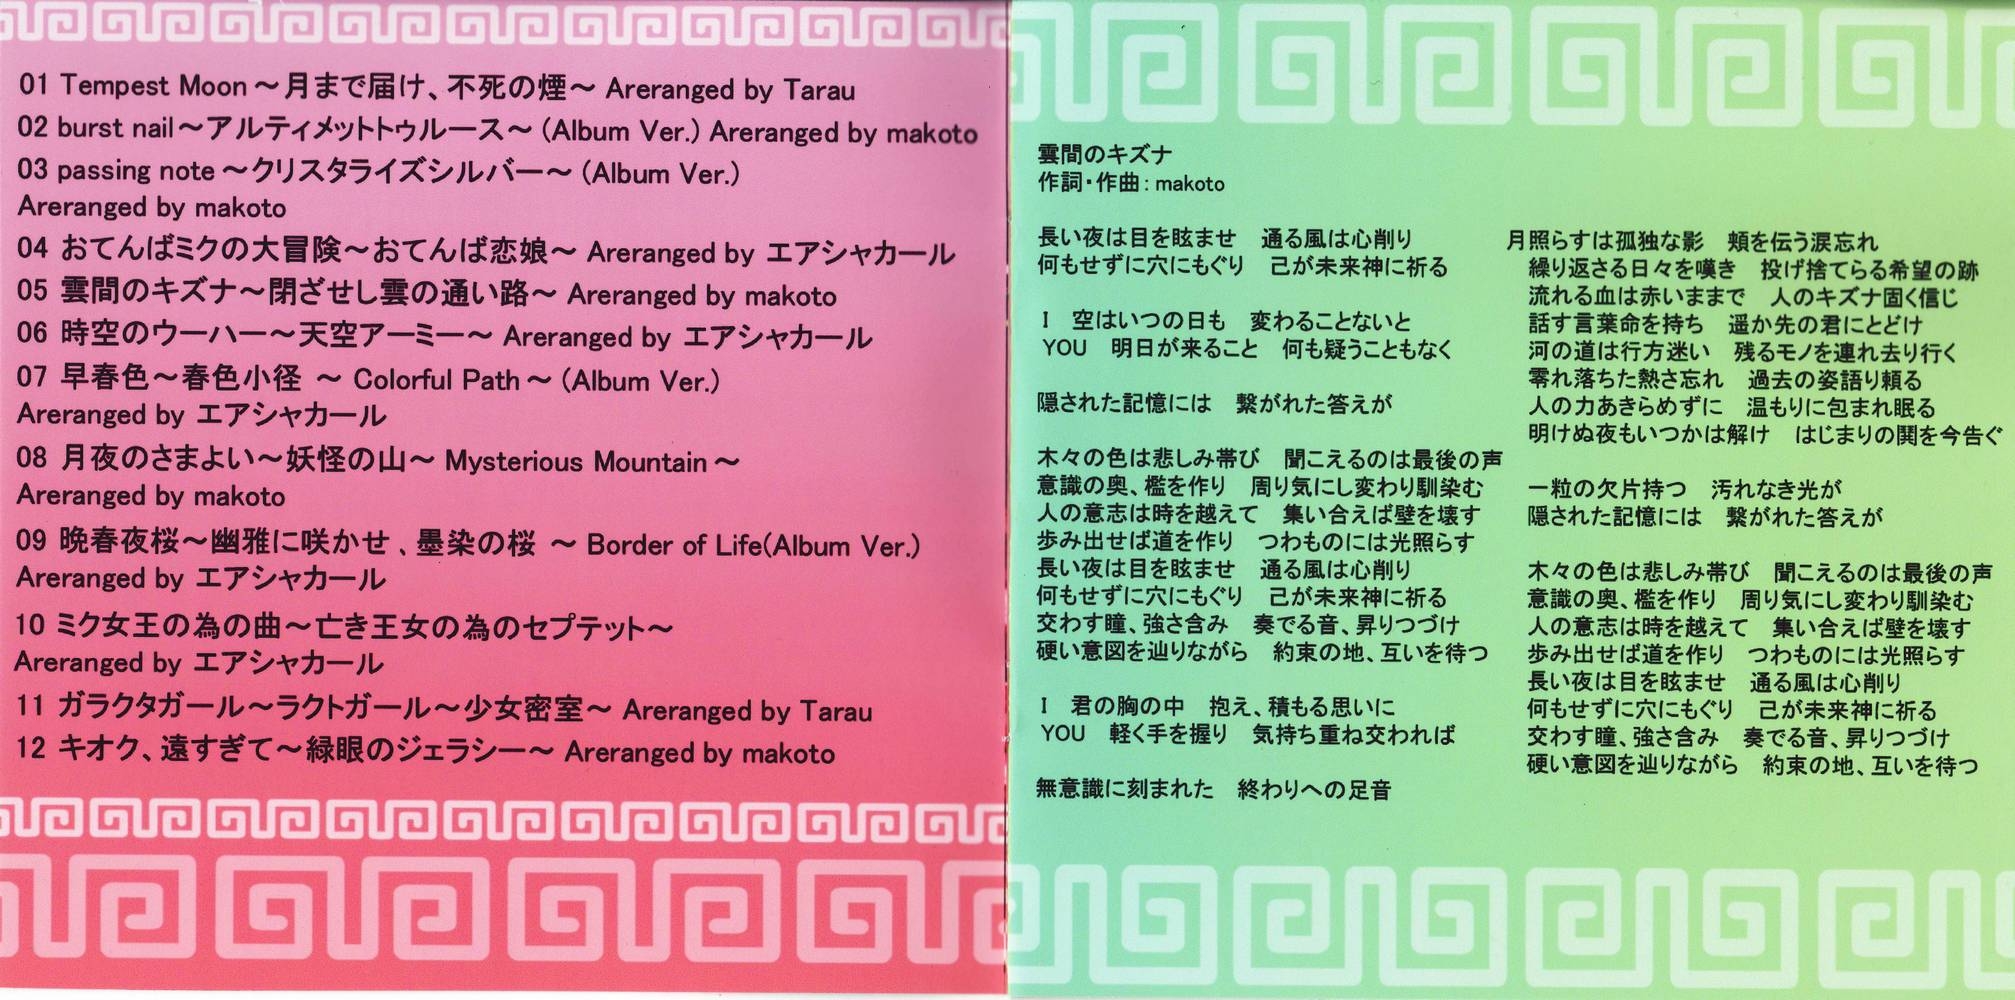 01 Tempest Moon～月まで届け、不死の煙～ Areranged by Tarau
02 burst nail～アルティメットトゥルース～ (Album Ver.) Areranged by makoto
03 passing note～クリスタライズシルバー～ (Album Ver.)
Areranged by makoto
04 おてんばミクの大冒険～おてんば恋娘～ Areranged by エアシャカール
05 雲間のキズナ～閉ざせし雲の通い路～ Areranged by makoto
06 時空のウーハー～天空アーミー～ Areranged by エアシャカール
07 早春色～春色小径 ～ Colorful Path～ (Album Ver.)
Areranged by エアシャカール
08 月夜のさまよい～妖怪の山～ Mysterious Mountain～
Areranged by makoto
09 晩春夜桜～幽雅に咲かせ、墨染の桜 ～ Border of Life(Album Ver.)
Areranged by エアシャカール
10 ミク女王の為の曲～亡き王女の為のセプテット～
Areranged by エアシャカール
11 ガラクタガール～ラクトガール～少女密室～ Areranged by Tarau
12 キオク、遠すぎて～緑眼のジェラシー～ Areranged by makoto
雲間のキズナ
作詞・作曲：makoto
長い夜は目を眩ませ　通る風は心削り
何もせずに穴にもぐり　己が未来神に祈る
I　空はいつの日も　変わることないと
YOU　明日が来ること　何も疑うこともなく
隠された記憶には　繋がれた答えが
木々の色は悲しみ帯び　聞こえるのは最後の声
意識の奥、檻を作り　周り気にし変わり馴染む
人の意志は時を越えて　集い合えば壁を壊す
歩み出せば道を作り　つわものには光照らす
長い夜は目を眩ませ　通る風は心削り
何もせずに穴にもぐり　己が未来神に祈る
交わす瞳、強さ含み　奏でる音、昇りつづけ
硬い意図を辿りながら　約束の地、互いを待つ
I　君の胸の中　抱え、積もる思いに
YOU　軽く手を握り　気持ち重ね交われば
無意識に刻まれた　終わりへの足音
月照らすは孤独な影　頬を伝う涙忘れ
繰り返さる日々を嘆き　投げ捨てらる希望の跡
流れる血は赤いままで　人のキズナ固く信じ
話す言葉命を持ち　遥か先の君にとどけ
河の道は行方迷い　残るモノを連れ去り行く
零れ落ちた熱さ忘れ　過去の姿語り頼る
人の力あきらめずに　温もりに包まれ眠る
明けぬ夜もいつかは解け　はじまりの鬨を今告ぐ
一粒の欠片持つ　汚れなき光が
隠された記憶には　繋がれた答えが
木々の色は悲しみ帯び　聞こえるのは最後の声
意識の奥、檻を作り　周り気にし変わり馴染む
人の意志は時を越えて　集い合えば壁を壊す
歩み出せば道を作り　つわものには光照らす
長い夜は目を眩ませ　通る風は心削り
何もせずに穴にもぐり　己が未来神に祈る
交わす瞳、強さ含み　奏でる音、昇りつづけ
硬い意図を辿りながら　約束の地、互いを待つ